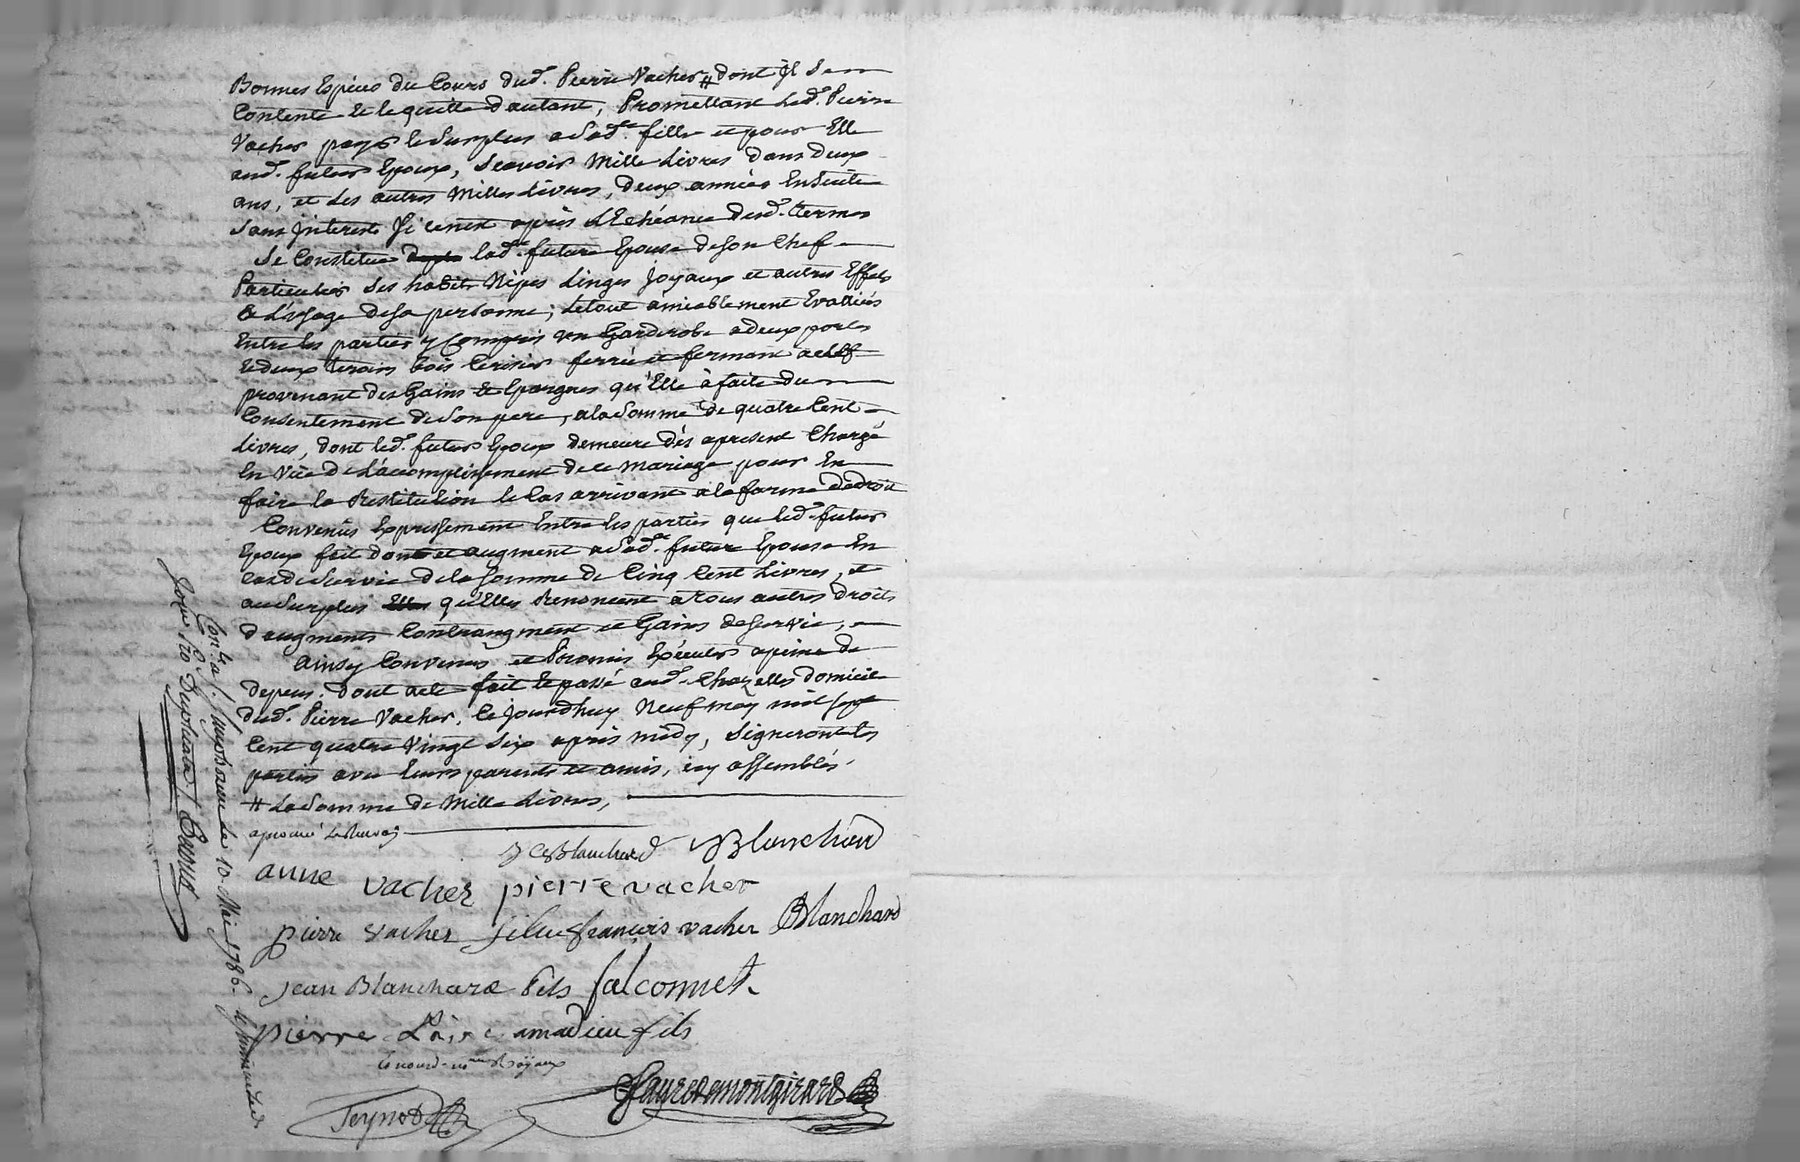 Bonnes Espéces du Cours dud. Pierre Vacher # dont Il Sen
Contente et le quitte d'autant, Promettant led. Pierre
Vacher payer le Surplus a Sad.e fille et pour Elle
aud. futur Epoux, Scavoir Mille Livres dans deux
ans, et Les autres Milles Livres, deux années Ensuite
Sans Interest Si ce n'est après L'Echéance desd. termes
Se Constitue lad.e future Epouse de Son Chef
Particulier Ses habits Nipes Linges Joyaux et autres Effets
à L'Usage de Sa personne; Le tout amiablement Evallués
Entre les parties y Compris un Garderobe a deux portes
et deux tiroirs bois Cerisier ferrée et fermant a clef
provenant des Gains et Epargnes qu'Elle à faite du
Consentement de Son pere, a la Somme de quatre Cent
Livres, dont led. futur Epoux demeure dés apresent Chargé
En Vüe de L'acomplissement de ce mariage pour En
faire la Restitution le Cas arrivant a la forme de droit
Convenus Expressement Entre les parties que led. futur
Epoux fait don et augment a Sad.e future Epouse En
cas de Survie de la Somme de Cinq Cent Livres, et
au Surplus qu'Elles Renoncent à tous autres droits
d'augments Contraugment et Gains de Survie,
ainsy Convenus et Promis Exécuter a peine de
depens. Dont acte fait et passé aud. Chazelles domicile
dud. Pierre Vacher, Ce jourd'huy Neuf may mil sept
Cent quatre Vingt Six après midy, Signeront les
parties avec leurs parents et amis, icy assemblés.
# La Somme de Mille Livres,
aprouvé Le Renvoy
Blanchard Blanchard
anne vacher pierre vacher
pierre vacher françois vacher Blanchard
jean Blanchard fils falconnet
pierre amadieu fils
Royaux
Teynod fayredemontgirard
10 Mai 1786.
Duplicata